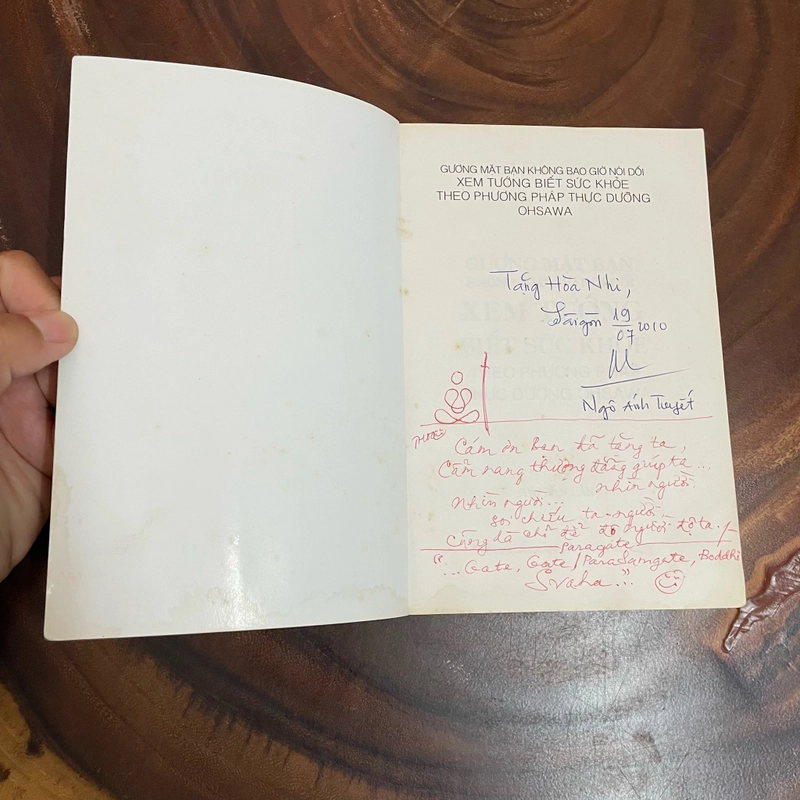 GƯƠNG MẶT BẠN KHÔNG BAO GIỜ NÓI DỐI
XEM TƯỚNG BIẾT SỨC KHỎE
THEO PHƯƠNG PHÁP THỰC DƯỠNG
OHSAWA
Tặng Hòa Nhi,
Sàigòn 19/07 2010
Ngô Ánh Tuyết
Cám ơn bạn đã tặng ta,
Cẩm nang thượng đẳng giúp ta...
nhìn người.
Nhìn người...
soi chiếu ta-người
Cũng là chỉ để độ người độ ta.
Paragate
"...Gate, Gate, ParaSamgate, Boddhi
Svaha..."